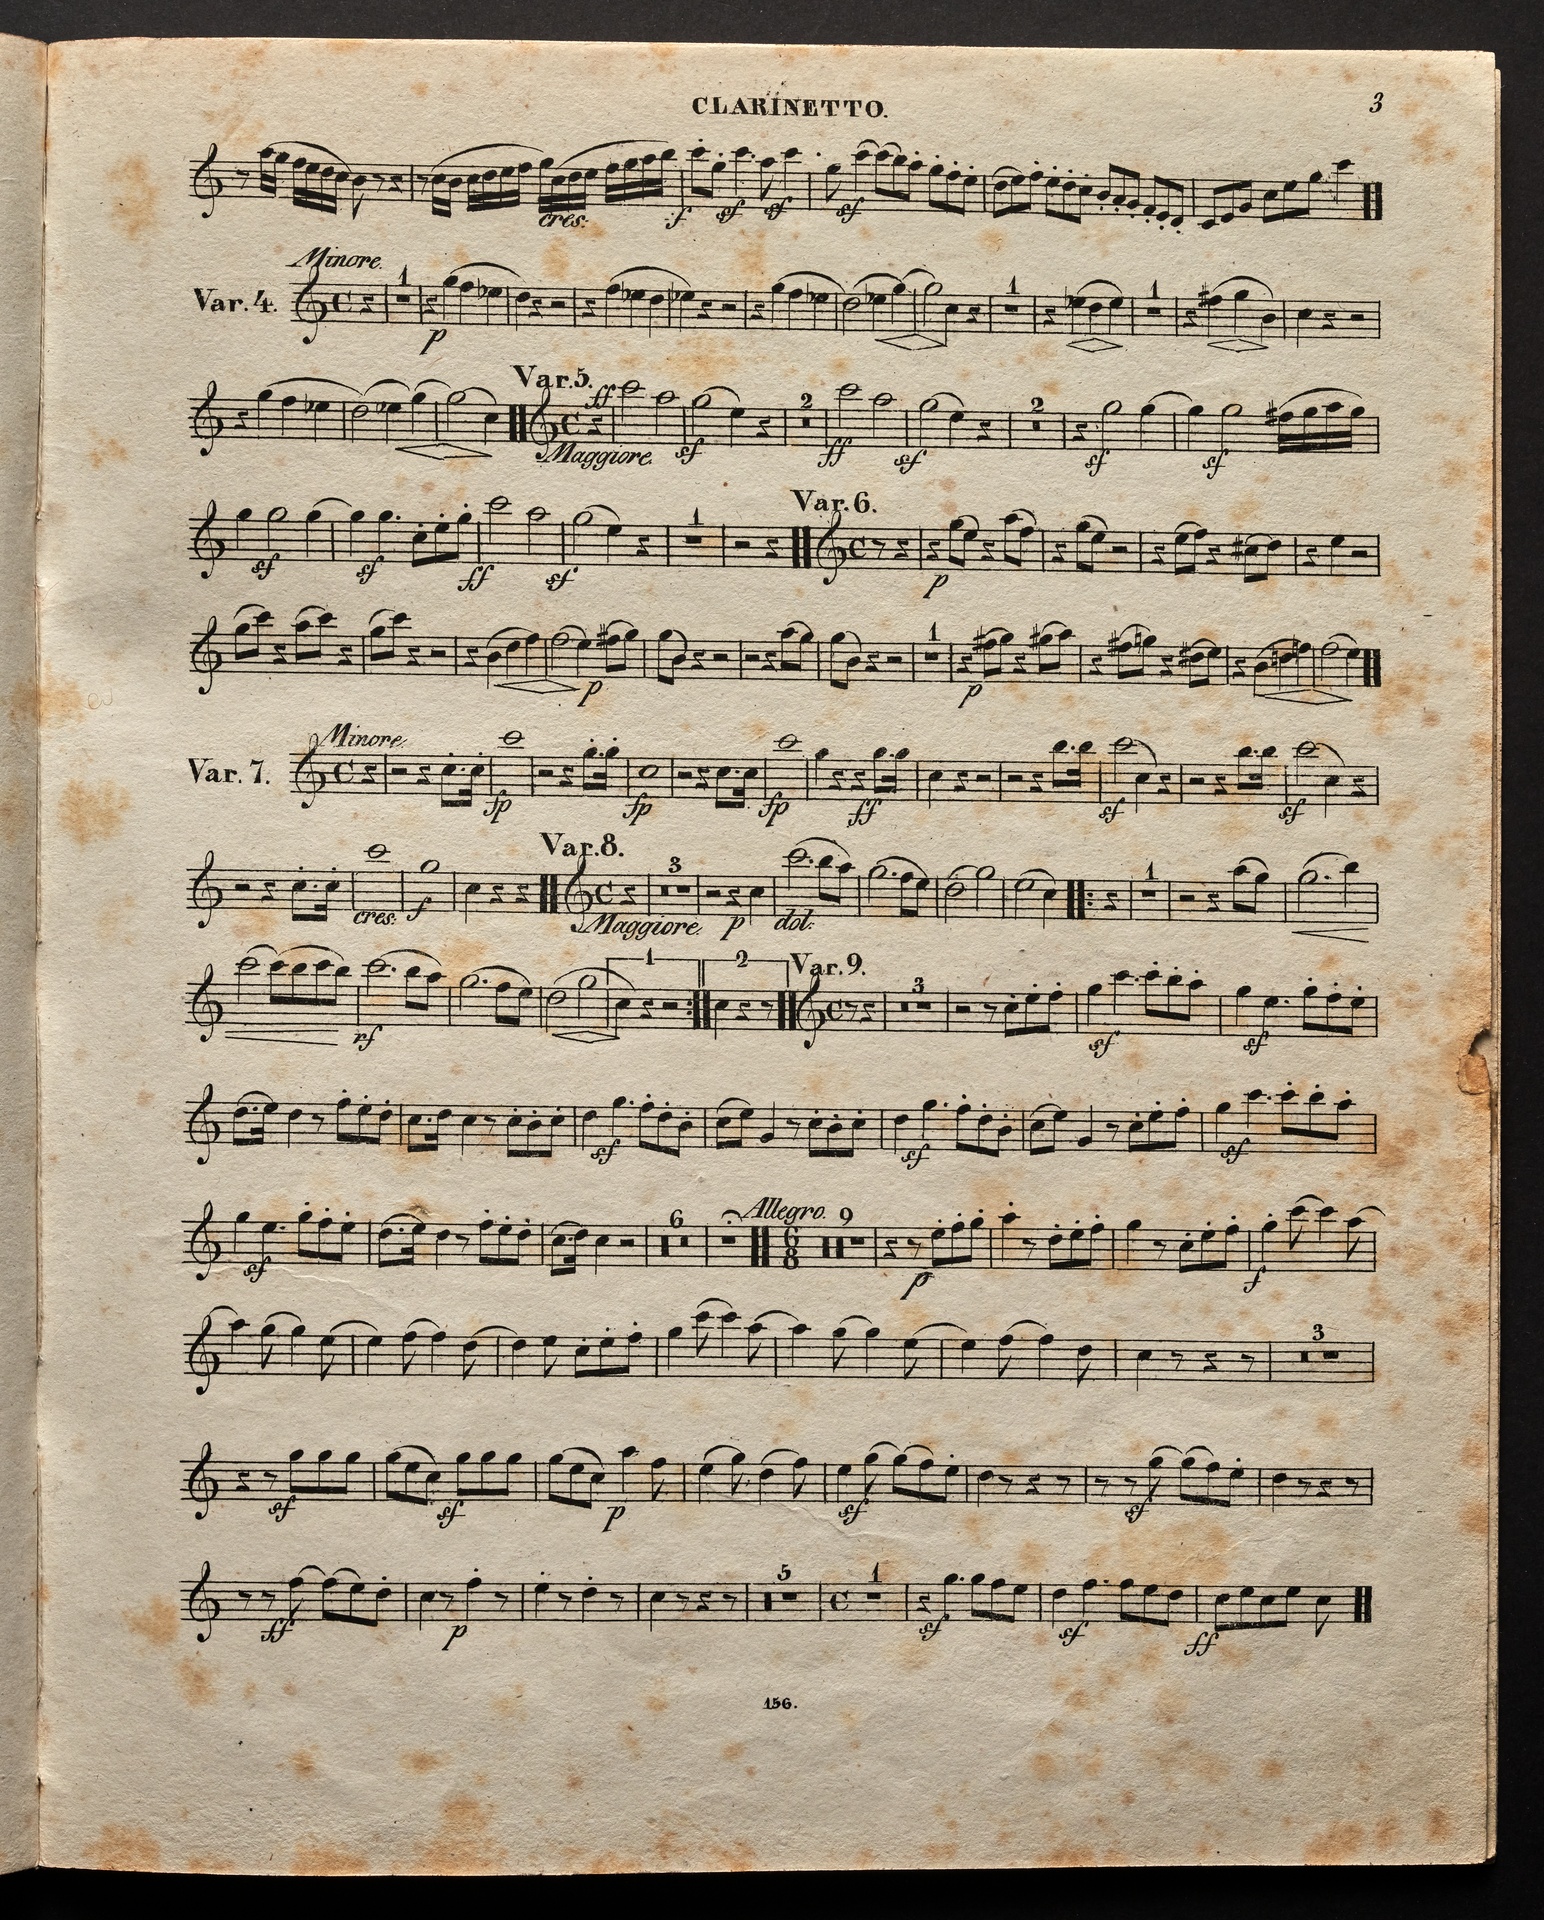 CLARINETTO.
3
cres. f sf sf sf
Minore.
Var. 4. 1 1 1
p
Var. 5.
ff 2 2
Maggiore. sf ff sf sf sf
Var. 6.
1
sf sf ff sf p
1
p p
Minore.
Var. 7.
fp fp fp ff sf sf
Var. 8.
3 1
cres. f Maggiore. p dol.
1 2 Var. 9.
3
rf sf sf
sf sf sf
Allegro.
6 9
6
8
sf p f
3
sf sf p sf sf
5 1
ff p sf sf ff
156.